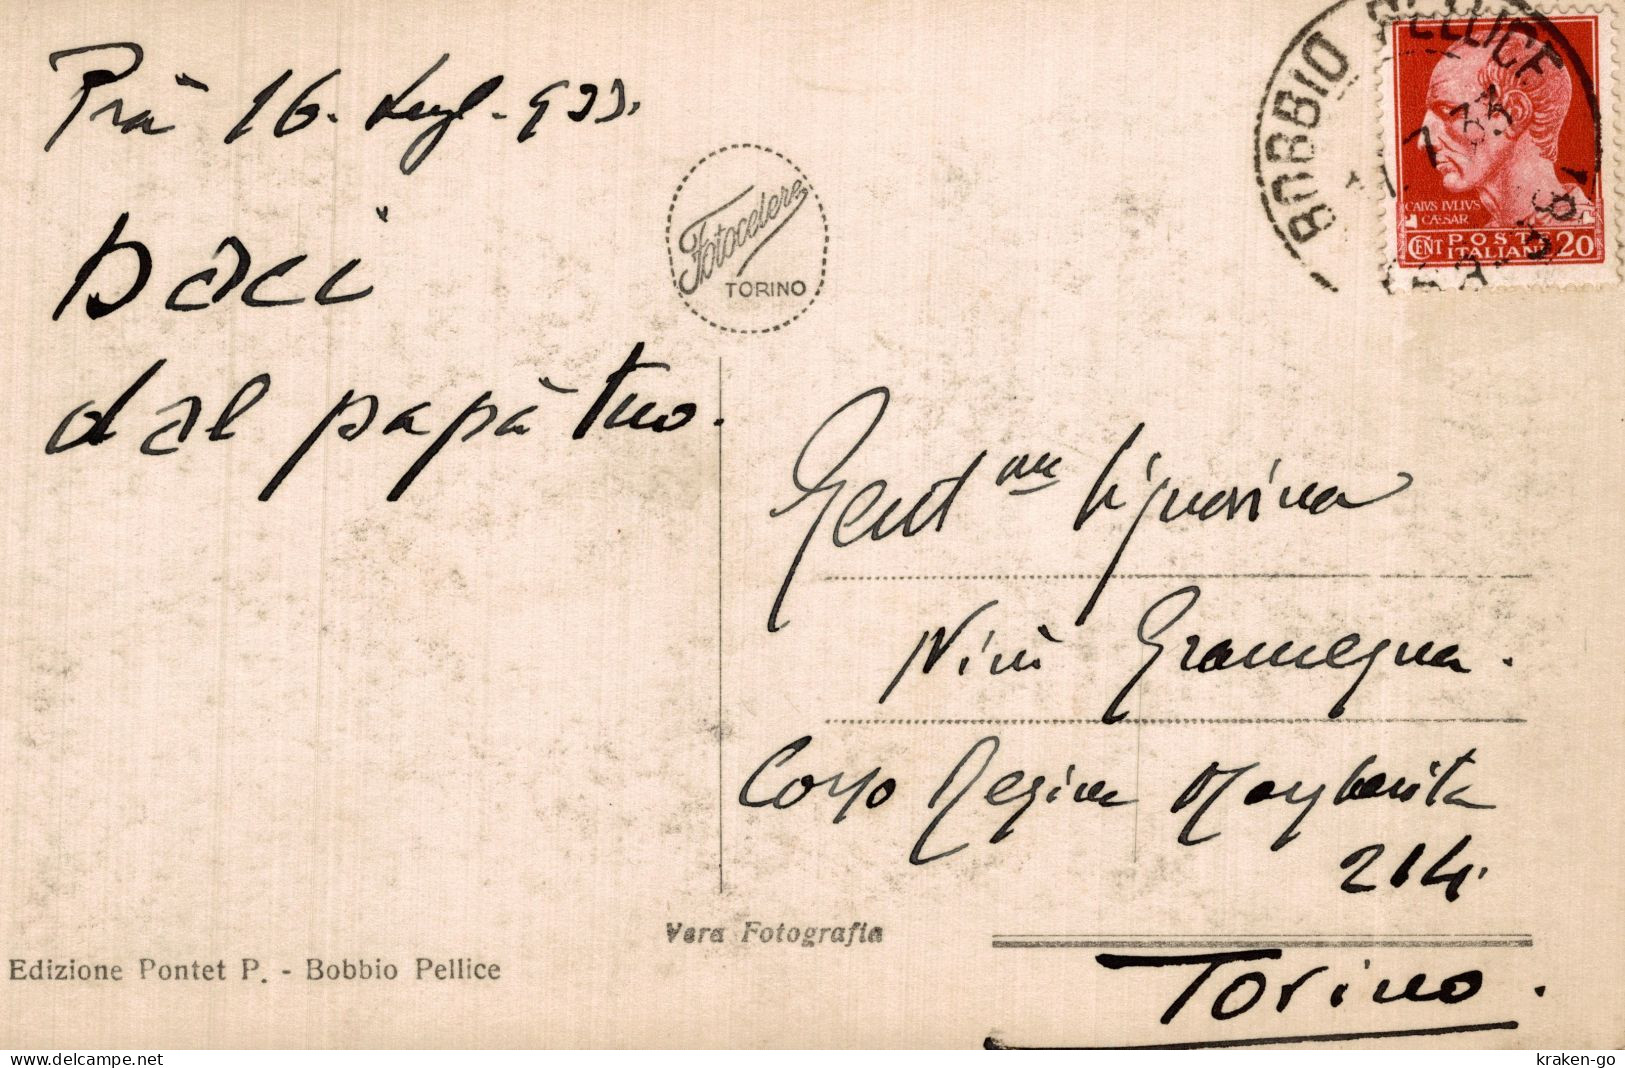 Prà 16. Lugl. 933.
baci
dal papà tuo.
Fotocelere
TORINO
BOBBIO PELLICE
7 33
CAIVS IVLIVS
CÆSAR
CENT POSTE ITALIANE 20
Gent.ma Signorina
Ninì Gramegna.
Corso Regina Margherita
214.
Torino.
Vera Fotografia
Edizione Pontet P. - Bobbio Pellice
www.delcampe.net
kraken-go